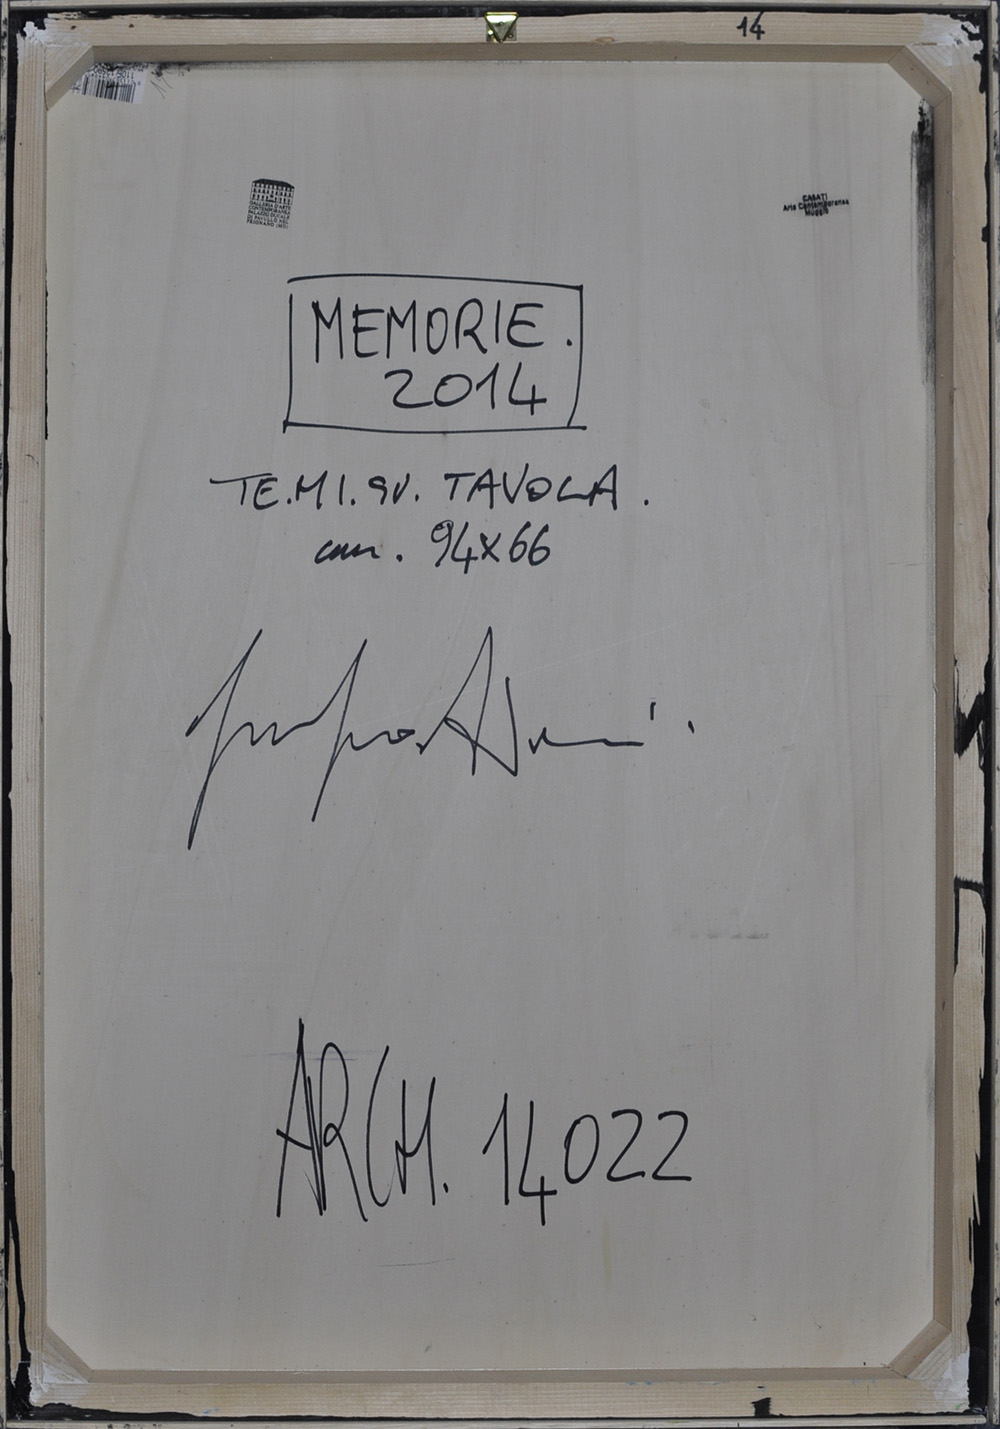 14
GALLERIA D'ARTE
CONTEMPORANEA
PALAZZO DUCALE
DI PAVULLO NEL
FRIGNANO (MO)
CASATI
Arte Contemporanea
Muggiò
MEMORIE.
2014
TE.MI.SU. TAVOLA.
cm. 94x66
ARCH. 14022